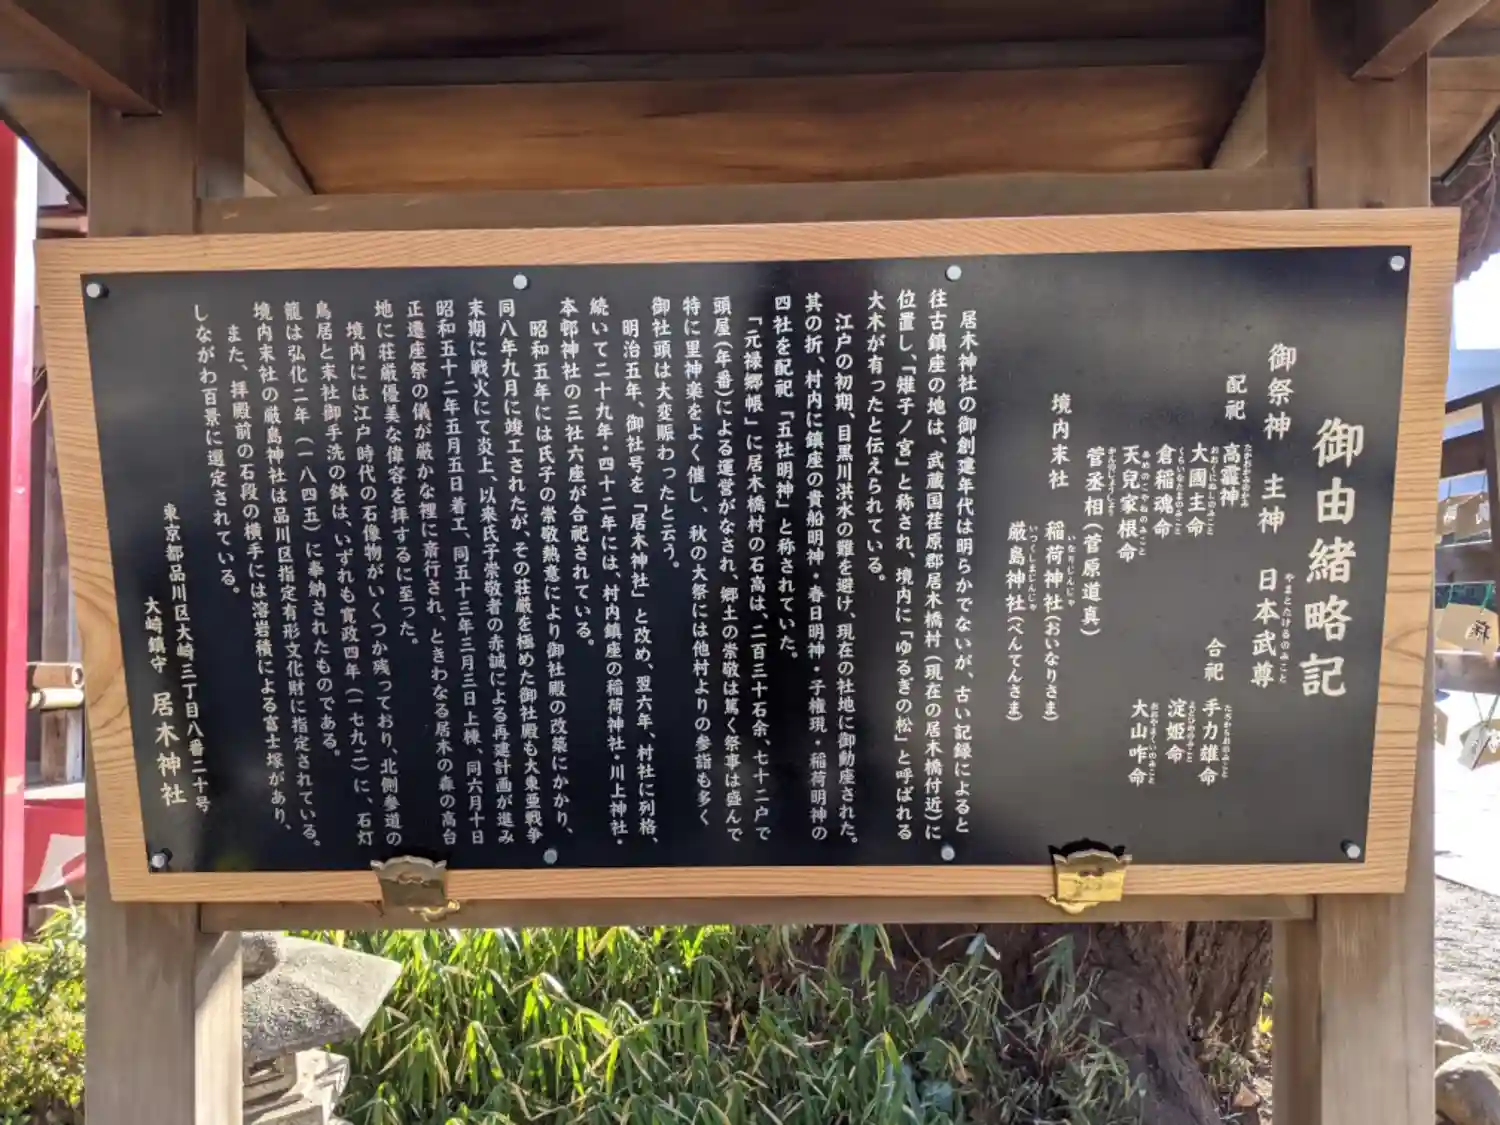 御由緒略記
御祭神 主神 日本武尊
やまとたけるのみこと
配祀 高龗神
たかおかみのかみ
大國主命
おおくにぬしのみこと
倉稲魂命
くらいなたまのみこと
天兒家根命
あめのこやねのみこと
菅丞相(菅原道真)
かんのしょうじょう
合祀 手力雄命
たぢからおのみこと
淀姫命
よどひめのみこと
大山咋命
おおやまくいのみこと
境内末社 稲荷神社(おいなりさま)
いなりじんじゃ
厳島神社(べんてんさま)
いつくしまじんじゃ
居木神社の御創建年代は明らかでないが、古い記録によると
往古鎮座の地は、武蔵国荏原郡居木橋村(現在の居木橋付近)に
位置し、「雉子ノ宮」と称され、境内に「ゆるぎの松」と呼ばれる
大木が有ったと伝えられている。
江戸の初期、目黒川洪水の難を避け、現在の社地に御動座された。
其の折、村内に鎮座の貴船明神・春日明神・子権現・稲荷明神の
四社を配祀「五社明神」と称されていた。
「元禄郷帳」に居木橋村の石高は、二百三十石余、七十二戸で
頭屋(年番)による運営がなされ、郷土の崇敬は篤く祭事は盛んで
特に里神楽をよく催し、秋の大祭には他村よりの参詣も多く
御社頭は大変賑わったと云う。
明治五年、御社号を「居木神社」と改め、翌六年、村社に列格、
続いて二十九年・四十二年には、村内鎮座の稲荷神社・川上神社・
本邨神社の三社六座が合祀されている。
昭和五年には氏子の崇敬熱意により御社殿の改築にかかり、
同八年九月に竣工されたが、その荘厳を極めた御社殿も大東亜戦争
末期に戦火にて炎上、以来氏子崇敬者の赤誠による再建計画が進み
昭和五十二年五月五日着工、同五十三年三月三日上棟、同六月十日
正遷座祭の儀が厳かな裡に斎行され、ときわなる居木の森の高台
地に荘厳優美な偉容を拝するに至った。
境内には江戸時代の石像物がいくつか残っており、北側参道の
鳥居と末社御手洗の鉢は、いずれも寛政四年(一七九二)に、石灯
籠は弘化二年(一八四五)に奉納されたものである。
境内末社の厳島神社は品川区指定有形文化財に指定されている。
また、拝殿前の石段の横手には溶岩積による富士塚があり、
しながわ百景に選定されている。
東京都品川区大崎三丁目八番二十号
大崎鎮守 居木神社